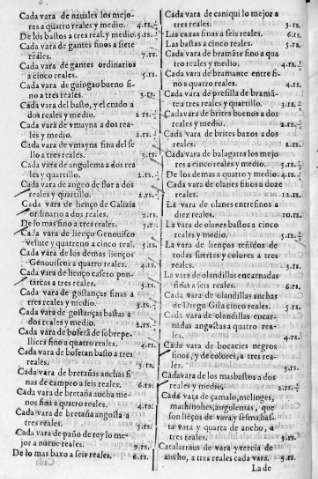 Cada vara de nauales los mejo-
res a quatro reales y medio. 4.rs.½
De los bastos a tres real.y medio 3.rs.½
Cada vara de gantes finos a siete
reales. 7.rs.
Cada vara de gantes ordinarios
a cinco reales. 5.rs.
Cada vara de guingao bueno fi-
no a tres reales. 3.rs.
Cada vara del basto, y el crudo a
dos reales y medio. 2.rs.½
Cada vara de vmayna a dos rea-
les y medio. 2.rs.½
Cada vara de vmayna fina del se
llo a tres reales. 3.rs.
Cada vara de angulema a dos rea
les y quartillo. 2.rs.
Cada vara de angeo de flor a dos
reales y quartillo. 2.rs.
Cada vara de lienço de Galizia
ordinario a dos reales. 2.rs.
De lo mas fino a tres reales. 3.rs.
Cada vara de lienço Genouisco
veinte y quatreno a cinco real. 5.rs.
Cada vara de los demas lienços
Genouiscos a quatro reales. 4.rs.
Cada vara de lienço casero
a tres reales. 3.rs.
Cada vara de gostanças finas a
tres reales y medio. 3.rs.½
Cada vara de gostanças bastas a
dos reales y medio. 2.rs.½
Cada vara de bofeta de sobrepe-
llices fino a quatro reales. 4.rs.
Cada vara de bofetan basto a tres
reales. 3.rs.
Cada vara de bretañas anchas fi
nas de campeo a seis reales. 6.rs.
Cada vara de bretaña ancha me-
nos fina a quatro reales. 4.rs.
Cada vara de bretaña angosta a
tres reales. 3.rs.
Cada vara de paño de rey lo me-
jor a nueue reales. 9.rs.
De lo mas baxo a seis reales. 6.rs.
Cada vara de caniqui lo mejor a
tres reales. 3.rs.
Las casas finas a seis reales. 6.rs.
Las bastas a cinco reales. 5.rs.
Cada vara de bramante fino a qua
tro reales y medio. 4.rs.½
Cada vara de bramante entre fi-
no a quatro reales. 4.rs.
Cada vara de presilla de brama-
te a tres reales y quartillo. 3.rs.
Cada vara de brites buenos a dos
reales y medio. 2.rs.½
Cada vara de brites baxos a dos
reales. 2.rs.
Cada vara de balagatas los mejo
res a cinco reales y medio. 5.rs.½
De los demas a quatro y medio. 4.rs.½
Cada vara de olanes finos a doze
reales. 12.rs.
La vara de olanes entrefinos a
diez reales. 10.rs.
La vara de olanes bastos a cinco
reales y medio. 5.rs.½
La vara de lienços teñidos de
todas suertes y colores a tres
reales. 3.rs.
La vara de olandillas encarnadas
finas a seis reales. 6.rs.
Cada vara de olandillas anchas
de cinco reales. 5.rs.
Cada vara de olandillas encar-
nadas angostas a quatro rea-
les. 4.rs.
Cada vara de bocacies negros
finos, y de colores, a tres rea-
les. 3.rs.
Cada vara de los mas bastos a dos
reales y medio. 2.rs.½
Cada vara de
que
son lieços de varas
vara y quarta de ancho, a
tres reales. 3.rs.
de vara y tercia de
ancho, a tres reales cada vara. 3.rs.
La de